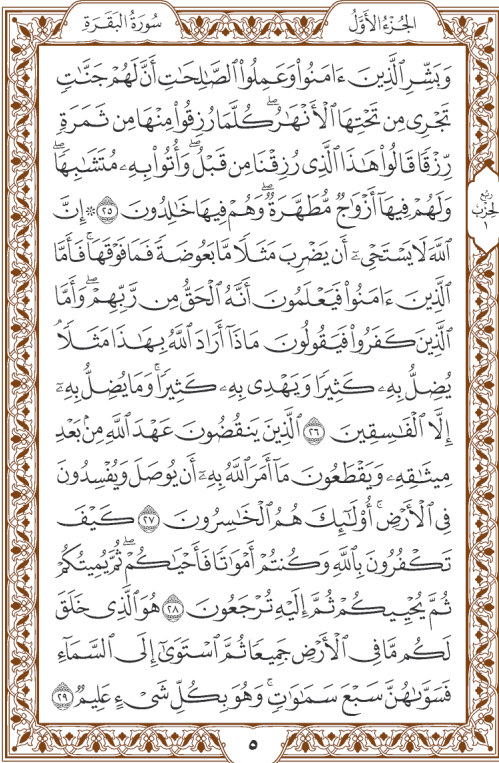 الجُزْءُ الأَوَّلُ
سُورَةُ البَقَرَةِ
وَبَشِّرِ ٱلَّذِينَ ءَامَنُواْ وَعَمِلُواْ ٱلصَّٰلِحَٰتِ أَنَّ لَهُمۡ جَنَّٰتٖ
تَجۡرِي مِن تَحۡتِهَا ٱلۡأَنۡهَٰرُۖ كُلَّمَا رُزِقُواْ مِنۡهَا مِن ثَمَرَةٖ
رِّزۡقٗا قَالُواْ هَٰذَا ٱلَّذِي رُزِقۡنَا مِن قَبۡلُۖ وَأُتُواْ بِهِۦ مُتَشَٰبِهٗاۖ
وَلَهُمۡ فِيهَآ أَزۡوَٰجٞ مُّطَهَّرَةٞۖ وَهُمۡ فِيهَا خَٰلِدُونَ ٢٥ ۞ إِنَّ
ٱللَّهَ لَا يَسۡتَحۡيِۦٓ أَن يَضۡرِبَ مَثَلٗا مَّا بَعُوضَةٗ فَمَا فَوۡقَهَاۚ فَأَمَّا
ٱلَّذِينَ ءَامَنُواْ فَيَعۡلَمُونَ أَنَّهُ ٱلۡحَقُّ مِن رَّبِّهِمۡۖ وَأَمَّا
ٱلَّذِينَ كَفَرُواْ فَيَقُولُونَ مَاذَآ أَرَادَ ٱللَّهُ بِهَٰذَا مَثَلٗاۘ
يُضِلُّ بِهِۦ كَثِيرٗا وَيَهۡدِي بِهِۦ كَثِيرٗاۚ وَمَا يُضِلُّ بِهِۦٓ
إِلَّا ٱلۡفَٰسِقِينَ ٢٦ ٱلَّذِينَ يَنقُضُونَ عَهۡدَ ٱللَّهِ مِنۢ بَعۡدِ
مِيثَٰقِهِۦ وَيَقۡطَعُونَ مَآ أَمَرَ ٱللَّهُ بِهِۦٓ أَن يُوصَلَ وَيُفۡسِدُونَ
فِي ٱلۡأَرۡضِۚ أُوْلَٰٓئِكَ هُمُ ٱلۡخَٰسِرُونَ ٢٧ كَيۡفَ
تَكۡفُرُونَ بِٱللَّهِ وَكُنتُمۡ أَمۡوَٰتٗا فَأَحۡيَٰكُمۡۖ ثُمَّ يُمِيتُكُمۡ
ثُمَّ يُحۡيِيكُمۡ ثُمَّ إِلَيۡهِ تُرۡجَعُونَ ٢٨ هُوَ ٱلَّذِي خَلَقَ
لَكُم مَّا فِي ٱلۡأَرۡضِ جَمِيعٗا ثُمَّ ٱسۡتَوَىٰٓ إِلَى ٱلسَّمَآءِ
فَسَوَّىٰهُنَّ سَبۡعَ سَمَٰوَٰتٖۚ وَهُوَ بِكُلِّ شَيۡءٍ عَلِيمٞ ٢٩
رُبع
الحِزْب
١
٥